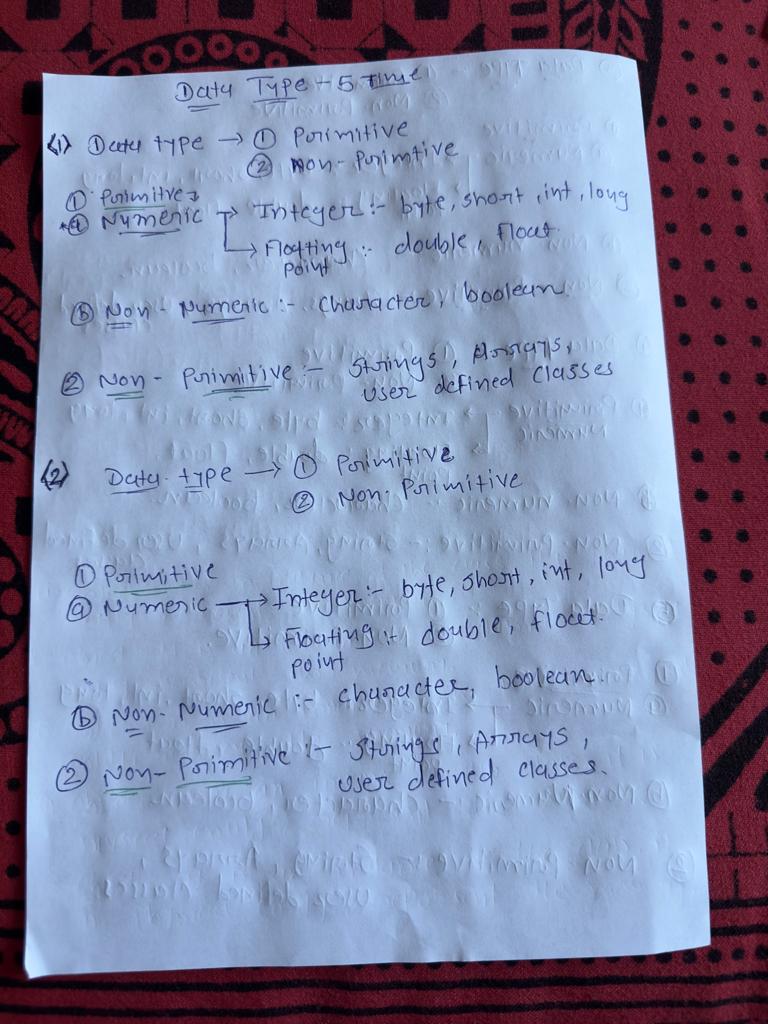 Data Type - 5 Time
<1> Data type → ① Primitive
② Non-Primtive
① Primitve
ⓐ Numeric → Integer :- byte, short, int, long
→ Floating :- double, float.
point
ⓑ Non-Numeric :- Character, boolean.
② Non-Primitive :- Strings, Arrays,
user defined classes
<2> Data type → ① Primitive
② Non-Primitive
① Primitive
ⓐ Numeric → Integer :- byte, short, int, long
→ Floating :- double, float.
point
ⓑ Non-Numeric :- character, boolean.
② Non-Primitive :- Strings, Arrays,
user defined classes.